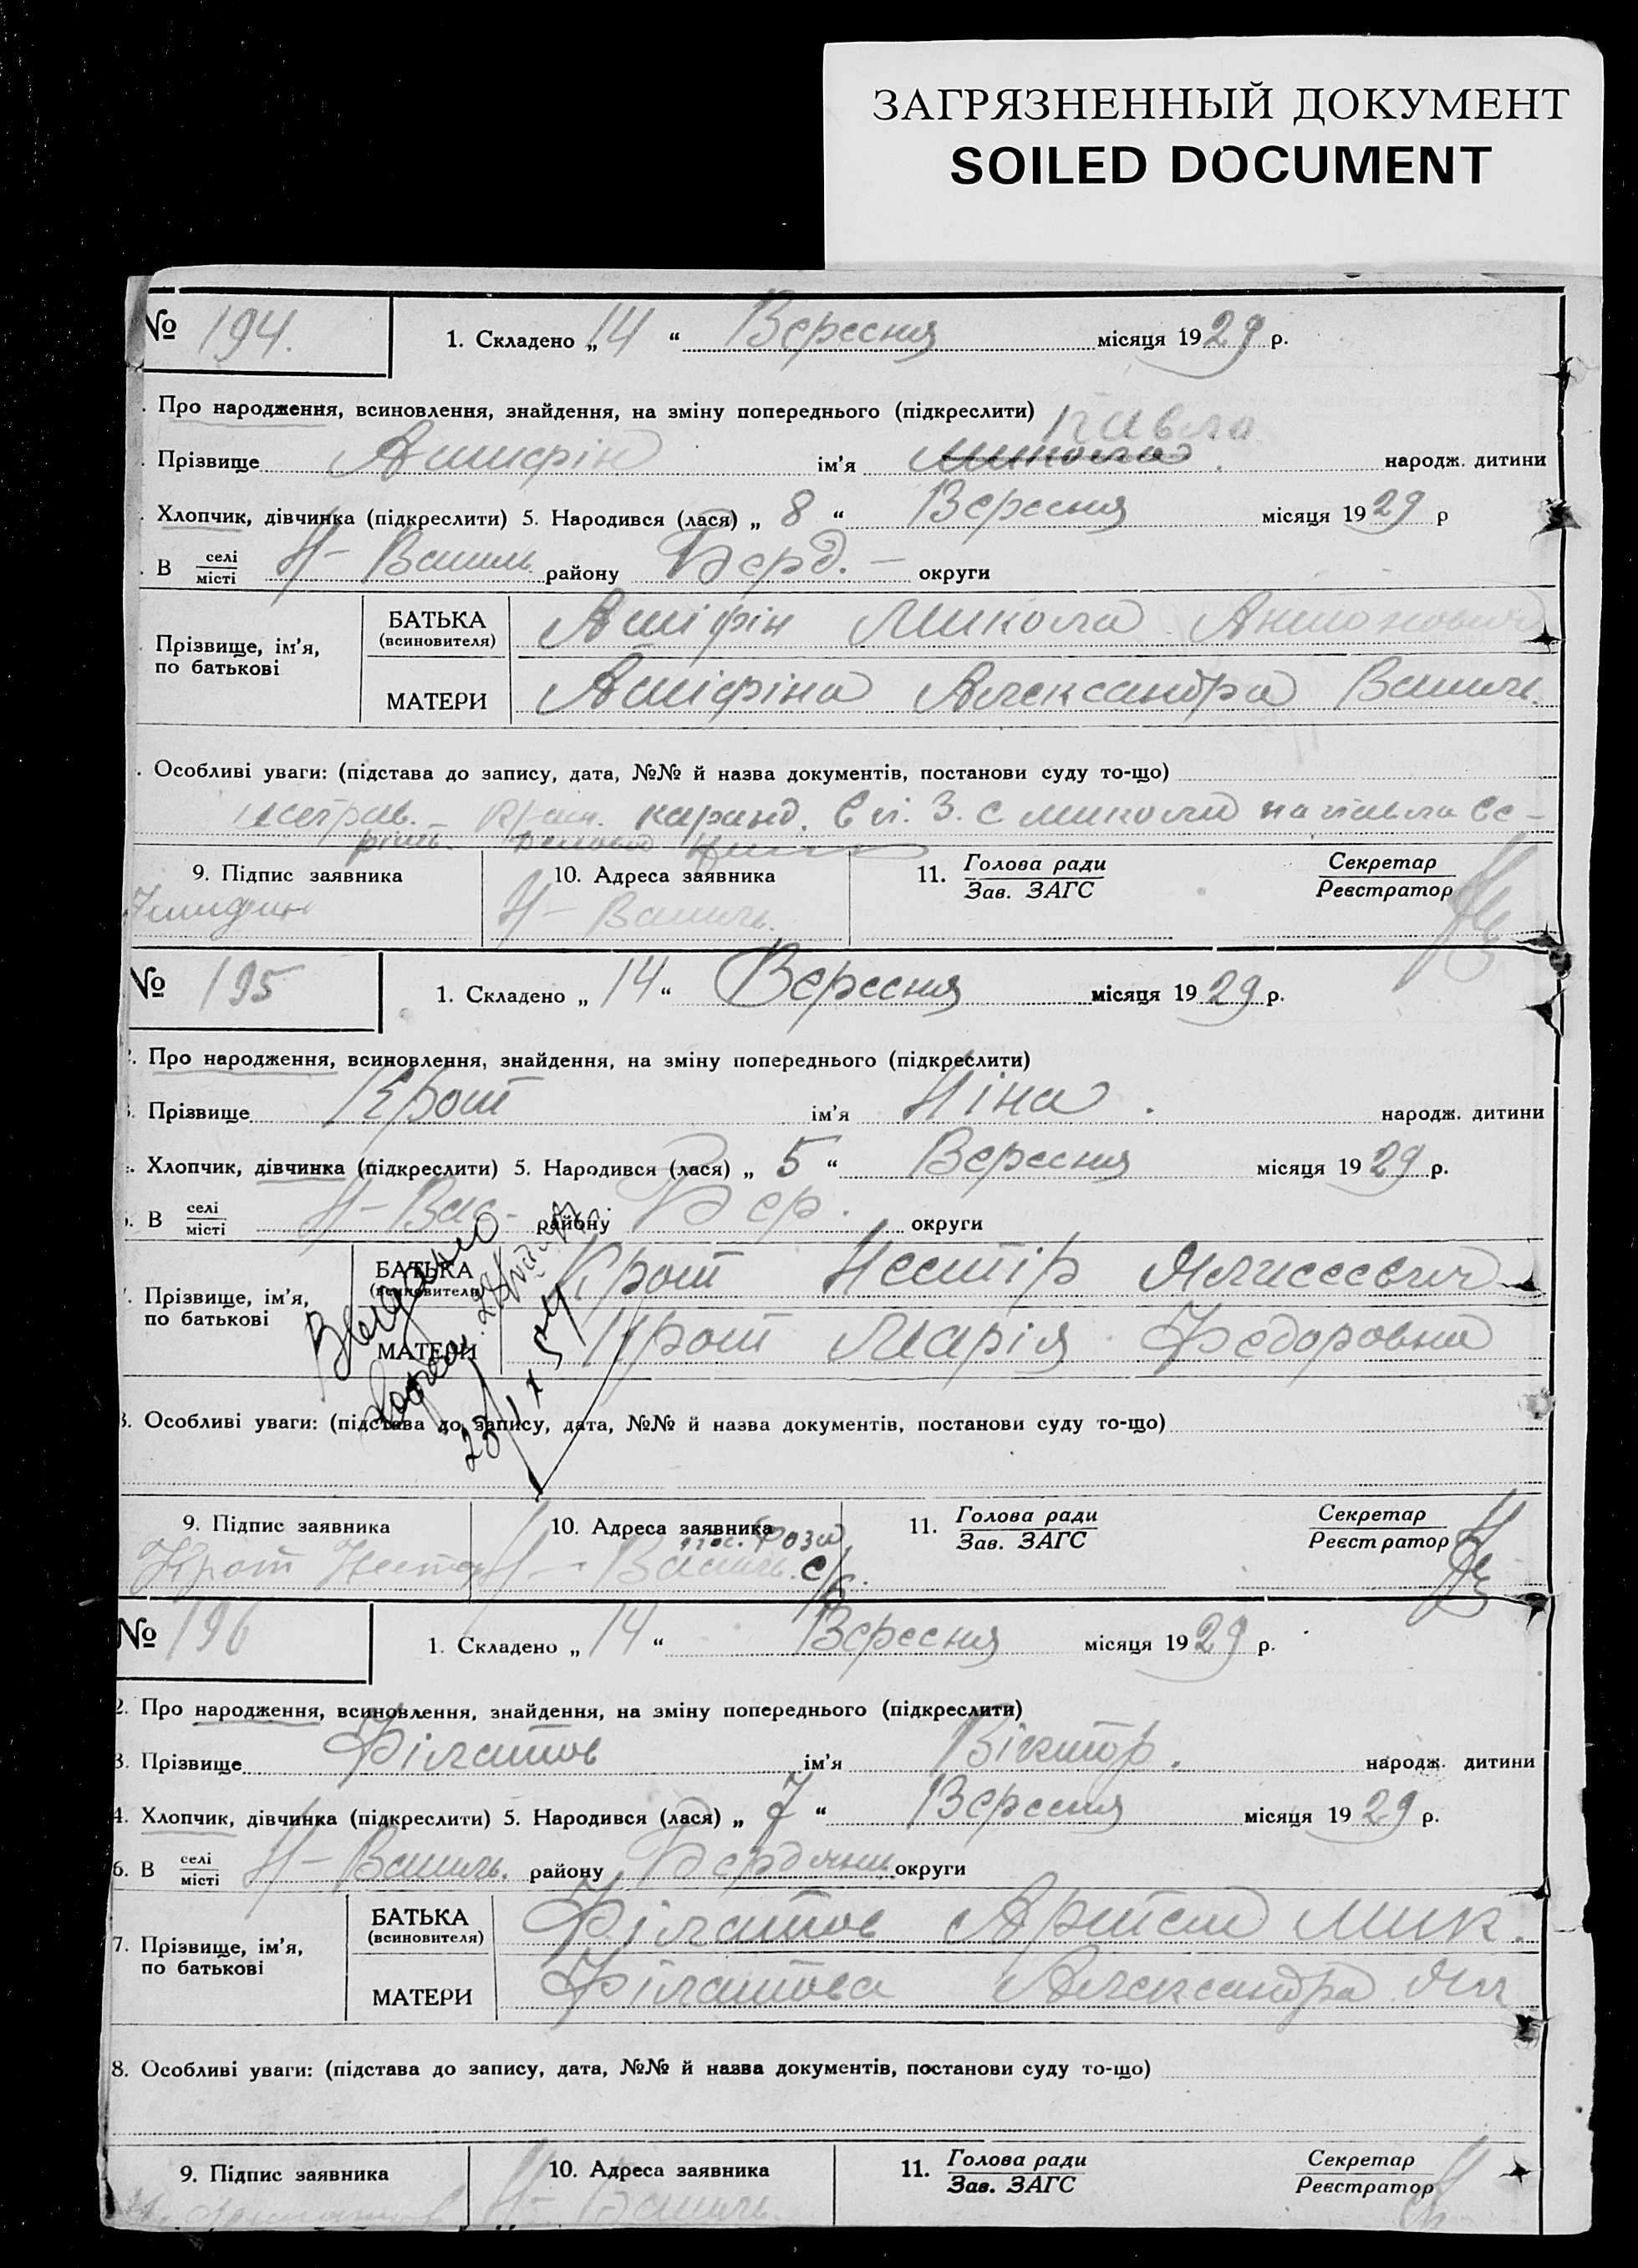 ЗАГРЯЗНЕННЫЙ ДОКУМЕНТ
SOILED DOCUMENT
№ 194. 1. Складено „ 14 “ Вересня місяця 1929 р.
. Про народження, всиновлення, знайдення, на зміну попереднього (підкреслити)
Павла
. Прізвище ім'я Микола народж. дитини
. Хлопчик, дівчинка (підкреслити) 5. Народився (лася) „ 8 “ Вересня місяця 1929 р
. В селі/місті Н-Василь району Берд. – округи
Прізвище, ім'я, по батькові
БАТЬКА (всиновителя) Микола Антонович
МАТЕРИ Александра Василь.
. Особливі уваги: (підстава до запису, дата, №№ й назва документів, постанови суду то-що)
исправ. каранд. в п. 3. с миколи на павла
9. Підпис заявника 10. Адреса заявника 11. Голова ради/Зав. ЗАГС Секретар/Реєстратор
Н-Василь.
№ 195 1. Складено „ 14 “ Вересня місяця 1929 р.
2. Про народження, всиновлення, знайдення, на зміну попереднього (підкреслити)
3. Прізвище Крот ім'я Ніна. народж. дитини
4. Хлопчик, дівчинка (підкреслити) 5. Народився (лася) „ 5 “ Вересня місяця 1929 р.
6. В селі/місті Н-Вас- району Бер. округи
7. Прізвище, ім'я, по батькові
БАТЬКА (всиновителя) Крот Нестір
МАТЕРИ Крот Марія Федоровна
Выдано
8. Особливі уваги: (підстава до запису, дата, №№ й назва документів, постанови суду то-що)
9. Підпис заявника 10. Адреса заявника 11. Голова ради/Зав. ЗАГС Секретар/Реєстратор
пос. Роза
Крот Н-Василь. с/р.
№ 196 1. Складено „ 14 “ Вересня місяця 1929 р.
2. Про народження, всиновлення, знайдення, на зміну попереднього (підкреслити)
3. Прізвище Філатов ім'я Віктор. народж. дитини
4. Хлопчик, дівчинка (підкреслити) 5. Народився (лася) „ 7 “ Вересня місяця 1929 р.
6. В селі/місті Н-Василь. району Бердянш. округи
7. Прізвище, ім'я, по батькові
БАТЬКА (всиновителя) Філатов Артем Мик.
МАТЕРИ Філатова Александра
8. Особливі уваги: (підстава до запису, дата, №№ й назва документів, постанови суду то-що)
9. Підпис заявника 10. Адреса заявника 11. Голова ради/Зав. ЗАГС Секретар/Реєстратор
Н-Василь.